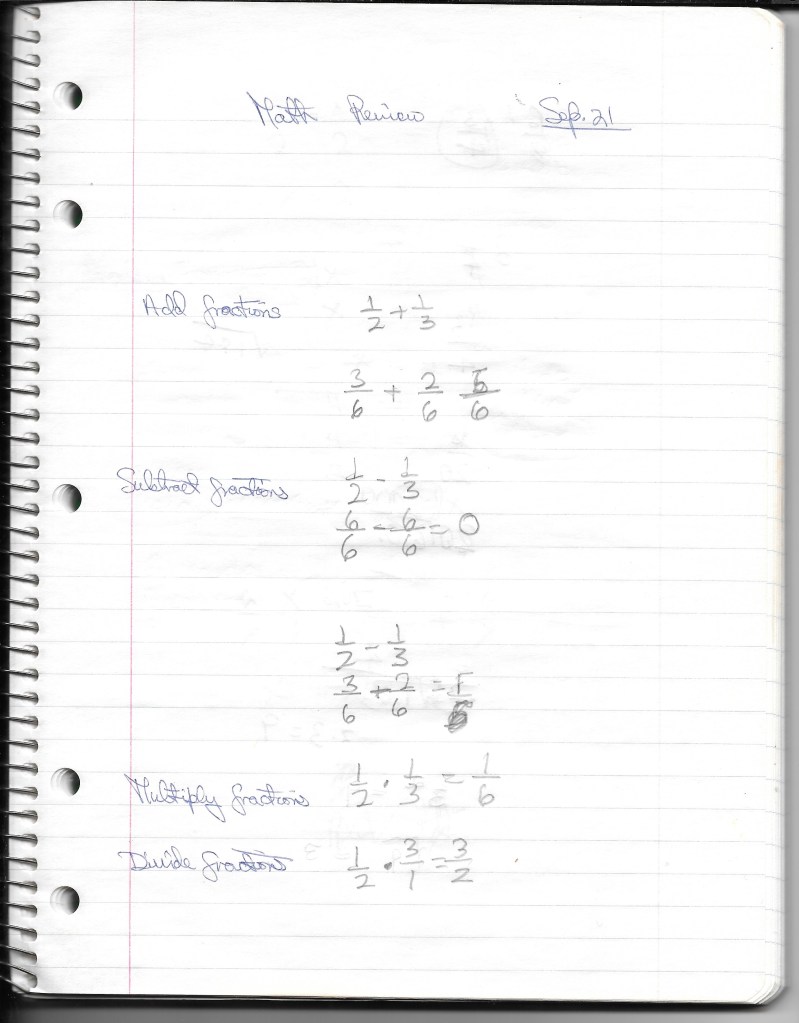 Math Review Sep. 21
Add fractions 1/2 + 1/3
3/6 + 2/6 5/6
Subtract fractions 1/2 - 1/3
6/6 - 6/6 = 0
1/2 - 1/3
3/6 - 2/6 =
Multiply fractions 1/2 · 1/3 = 1/6
Divide fractions 1/2 · 3/1 = 3/2